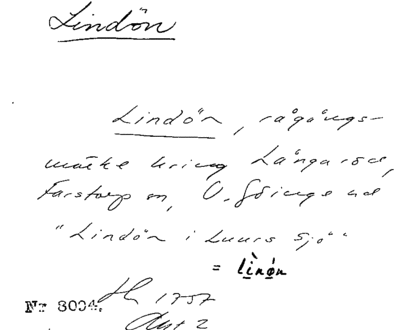 Lindön
Lindön, rågångs-
märke kring Långaröd,
Farstorp sn, V. Göinge hd
"Lindön i Luurs Sjö"
= lìnø̀n
Nr 8004.
1757
Akt 2